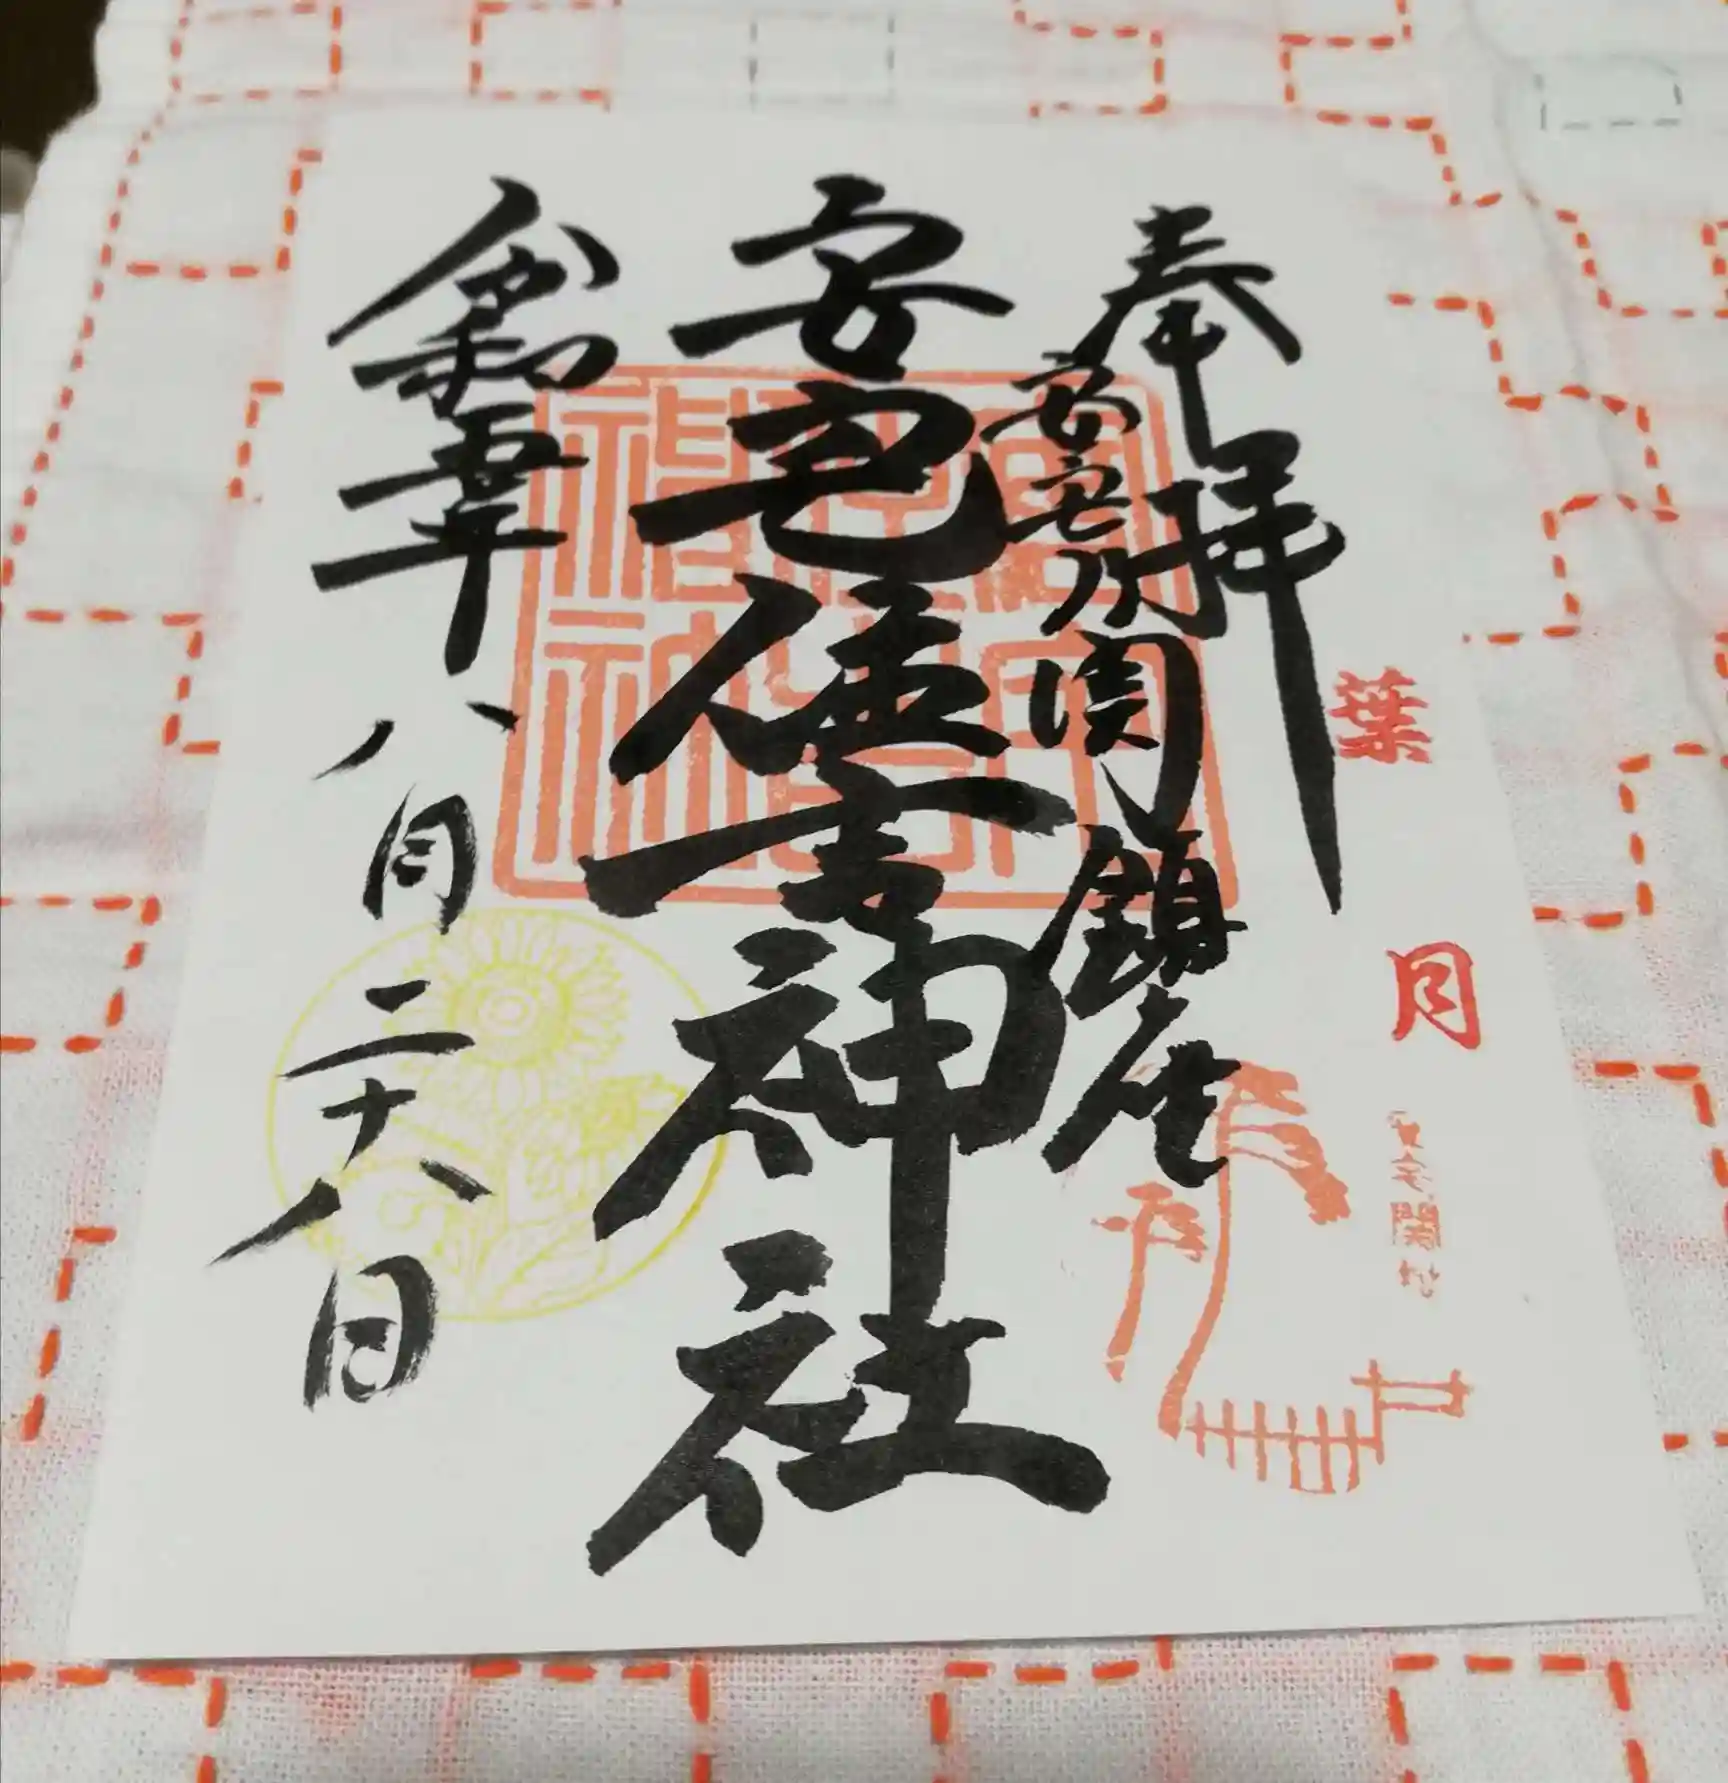 葉月
安宅関址
奉拝
安宅乃関鎮座
安宅住吉神社
令和五年八月二十八日